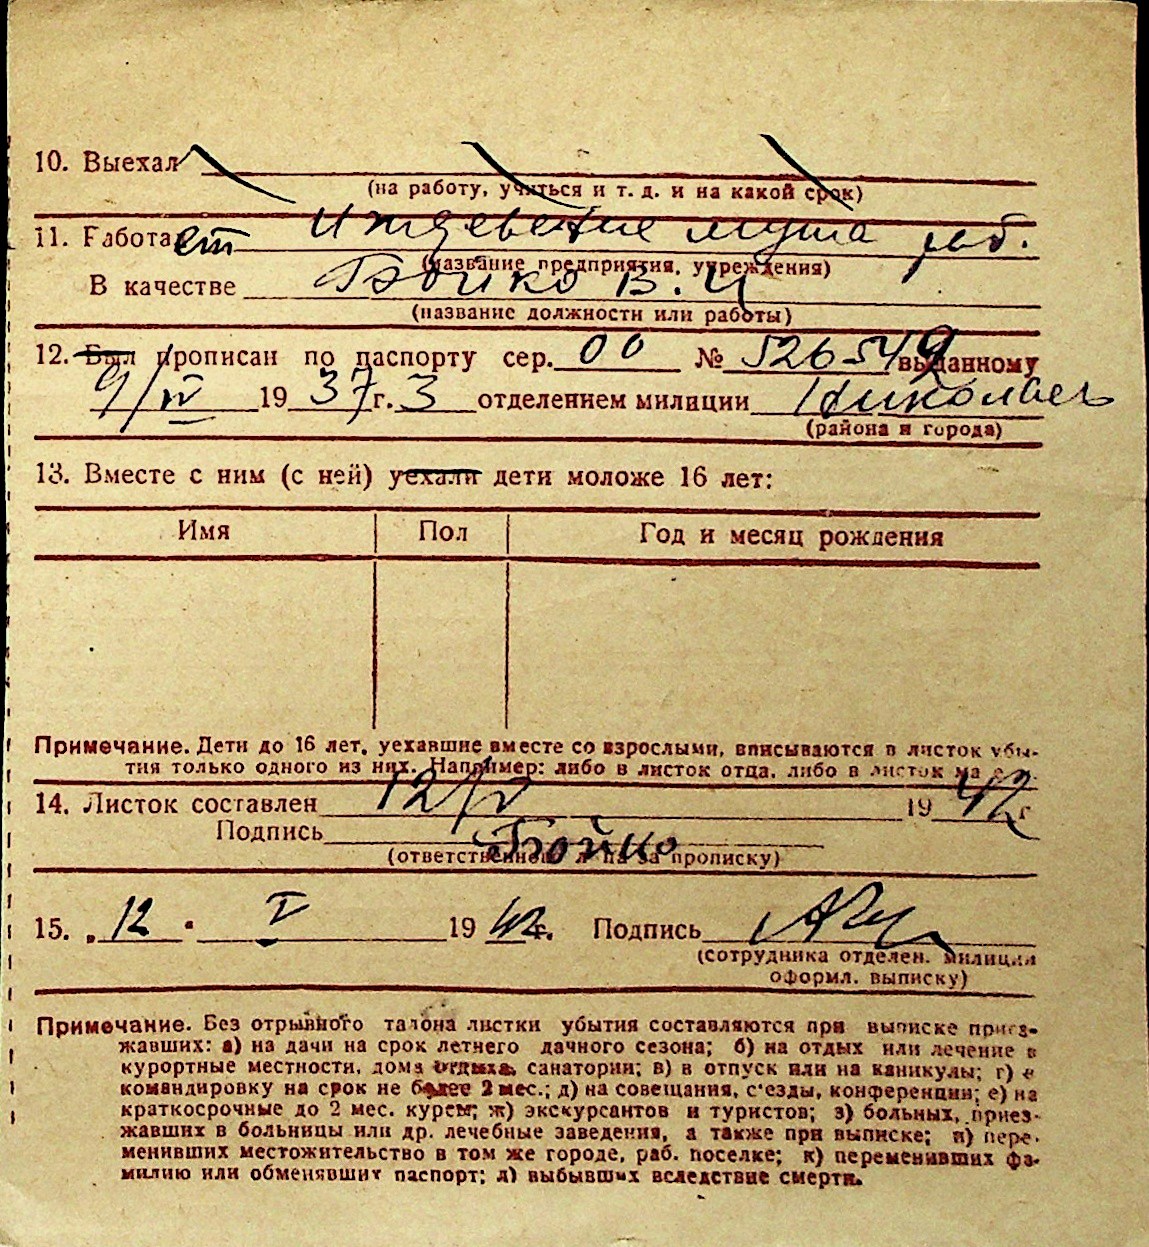 10. Выехал
(на работу, учиться и т. д. и на какой срок)
11. Работает Иждевение мужа раб.
(название предприятия, учреждения)
В качестве Бойко В. И
(название должности или работы)
12. Был прописан по паспорту сер. 00 № 526549 выданному
9/IV 1937 г. 3 отделением милиции Николаев
(района и города)
13. Вместе с ним (с ней) уехали дети моложе 16 лет:
Имя Пол Год и месяц рождения
Примечание. Дети до 16 лет, уехавшие вместе со взрослыми, вписываются в листок убы-
тия только одного из них. Например: либо в листок отца, либо в листок
14. Листок составлен 12/V 1942 г
Подпись Бойко
(ответственного за прописку)
15. „12" V 1942 г. Подпись
(сотрудника отделен. милиции
оформл. выписку)
Примечание. Без отрывного талона листки убытия составляются при выписке приез-
жавших: а) на дачи на срок летнего дачного сезона; б) на отдых или лечение в
курортные местности, дома отдыха, санатории; в) в отпуск или на каникулы; г) в
командировку на срок не более 2 мес.; д) на совещания, с'езды, конференции; е) на
краткосрочные до 2 мес. курсы; ж) экскурсантов и туристов; з) больных, приез-
жавших в больницы или др. лечебные заведения, а также при выписке; и) пере-
менивших местожительство в том же городе, раб. поселке; к) переменивших фа-
милию или обменявших паспорт; л) выбывших вследствие смерти.